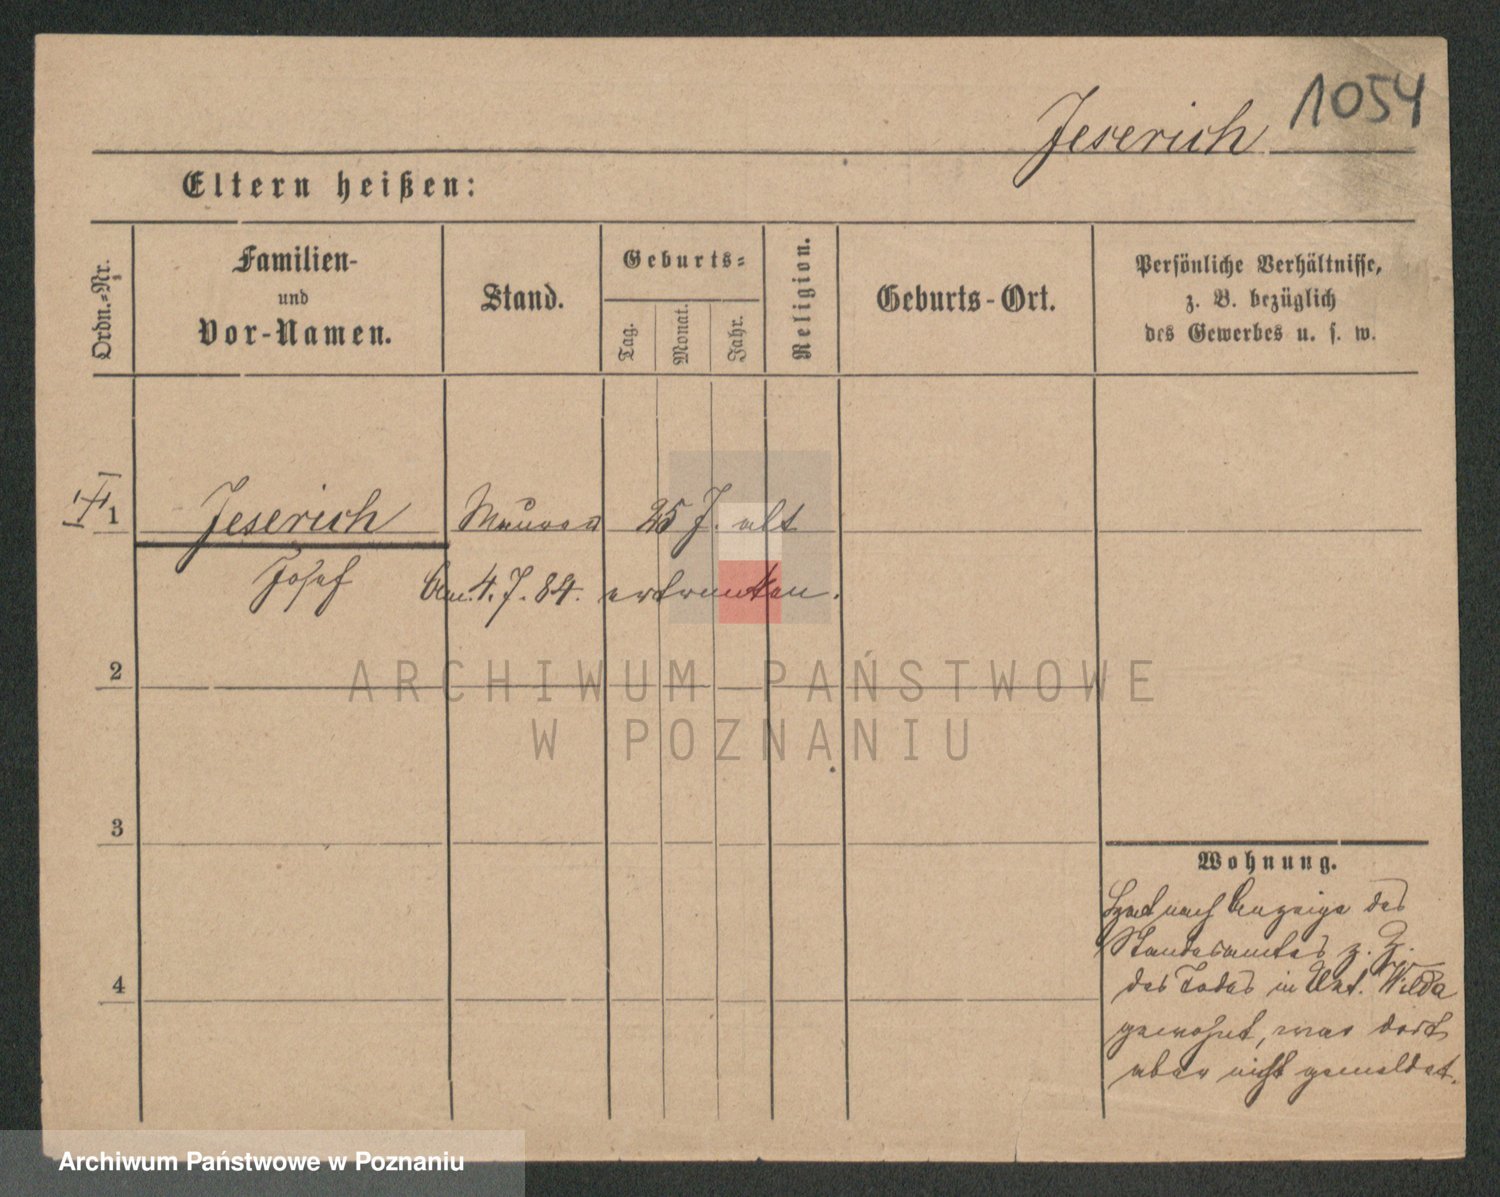 1054
Jeserich
Eltern heißen:
Ordn.-Nr.
Familien-
und
Vor-Namen.
Stand.
Geburts-
Tag.
Monat.
Jahr.
Religion.
Geburts-Ort.
Persönliche Verhältnisse,
z. B. bezüglich
des Gewerbes u. s. w.
1 Jeserich Maurer 25 J. alt
Josef Am. 4. 7. 84. ertrunken.
2
ARCHIWUM PAŃSTWOWE
W POZNANIU
3
Wohnung.
Hat nach Anzeige des
Standesamtes z. Z.
4
des Todes in Unt. Wilda
gewohnt, war dort
aber nicht gemeldet.
Archiwum Państwowe w Poznaniu